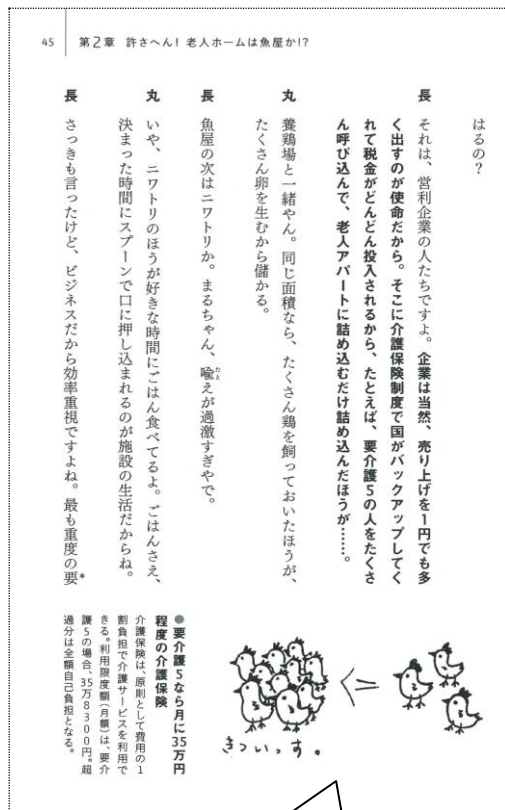 45 第2章 許さへん! 老人ホームは魚屋か!?
はるの?
長 それは、営利企業の人たちですよ。企業は当然、売り上げを1円でも多
く出すのが使命だから。そこに介護保険制度で国がバックアップしてく
れて税金がどんどん投入されるから、たとえば、要介護5の人をたくさ
ん呼び込んで、老人アパートに詰め込むだけ詰め込んだほうが……。
丸 養鶏場と一緒やん。同じ面積なら、たくさん鶏を飼っておいたほうが、
たくさん卵を生むから儲かる。
長 魚屋の次はニワトリか。まるちゃん、喩えが過激すぎやで。
たと
丸 いや、ニワトリのほうが好きな時間にごはん食べてるよ。ごはんさえ、
決まった時間にスプーンで口に押し込まれるのが施設の生活だからね。
長 さっきも言ったけど、ビジネスだから効率重視ですよね。最も重度の要*
きついっす。
●要介護5なら月に35万円
程度の介護保険
介護保険は、原則として費用の1
割負担で介護サービスを利用で
きる。利用限度額(月額)は、要介
護5の場合、35万8300円。超
過分は全額自己負担となる。